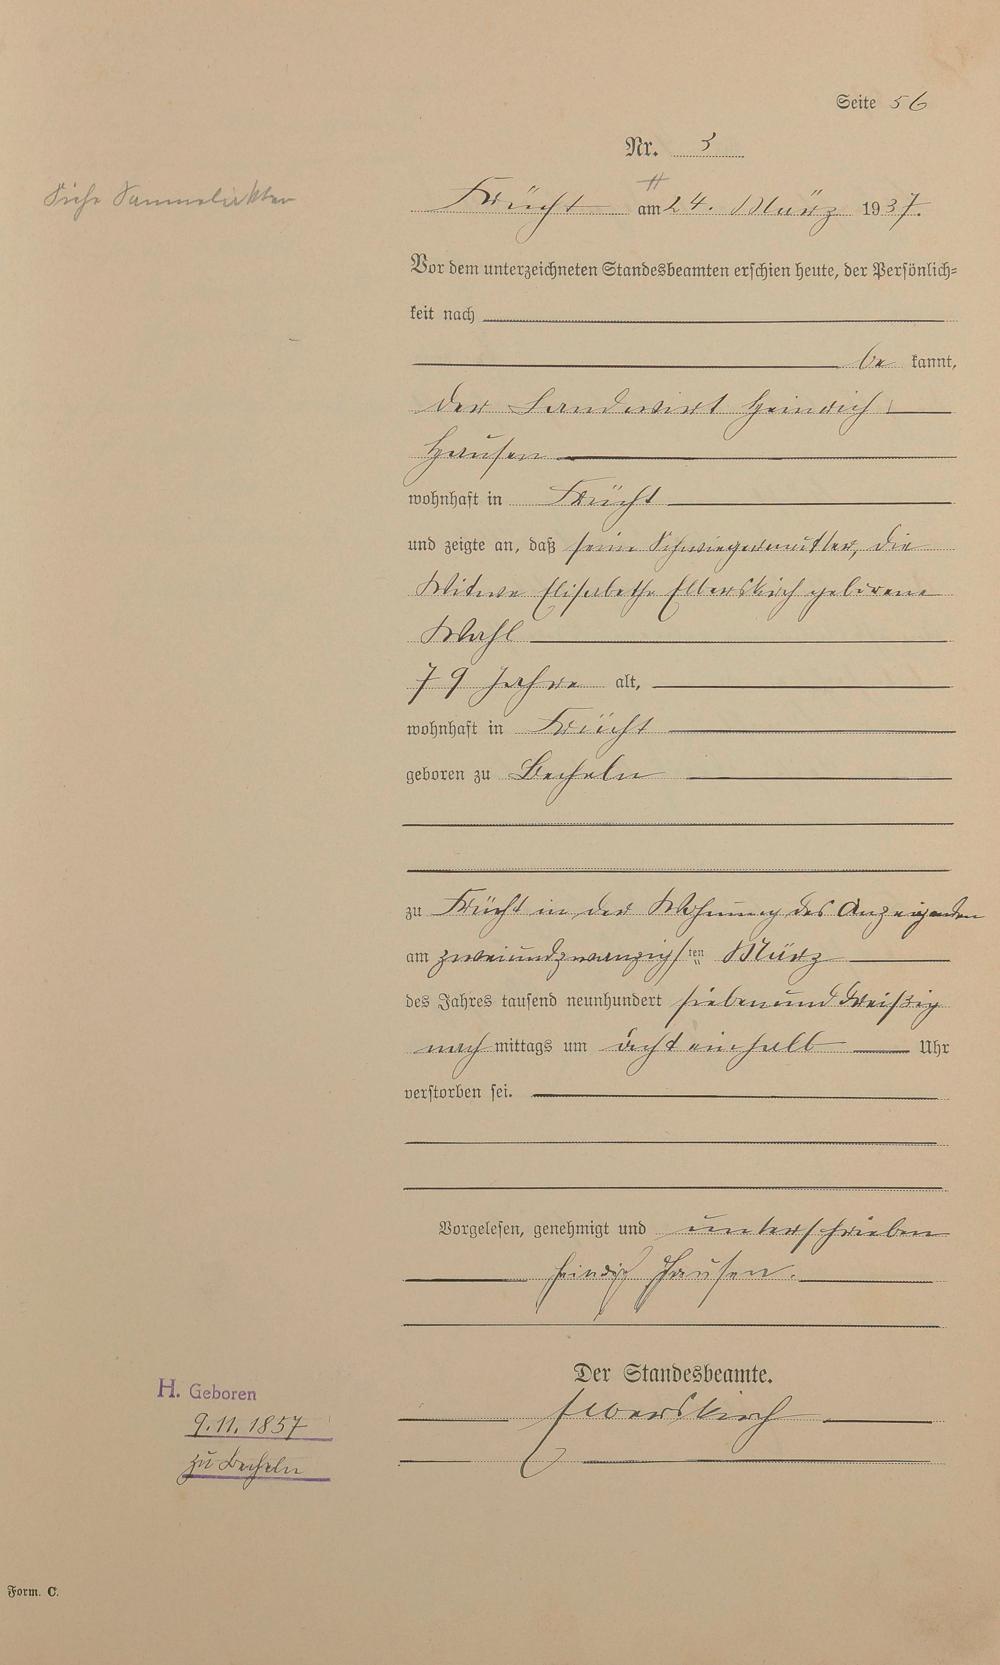 Seite 56
Nr. 3
Siehe Sammelakten
Frücht am 24. März 1937.
Vor dem unterzeichneten Standesbeamten erschien heute, der Persönlich=
keit nach
be kannt,
der Landwirt Heinrich
Hausen
wohnhaft in Frücht
und zeigte an, daß seine Schwiegermutter, die
Witwe Elisabethe Elberskirch geborene
Wahl
79 Jahre alt,
wohnhaft in Frücht
geboren zu Becheln
zu Frücht in der Wohnung des Anzeigenden
am zweiundzwanzigsten März
des Jahres tausend neunhundert siebenunddreißig
nach mittags um acht einhalb Uhr
verstorben sei.
Vorgelesen, genehmigt und unterschrieben
Heinrich Hausen.
Der Standesbeamte.
Elberskirch
H. Geboren
9.11.1857
zu Becheln
Form. C.